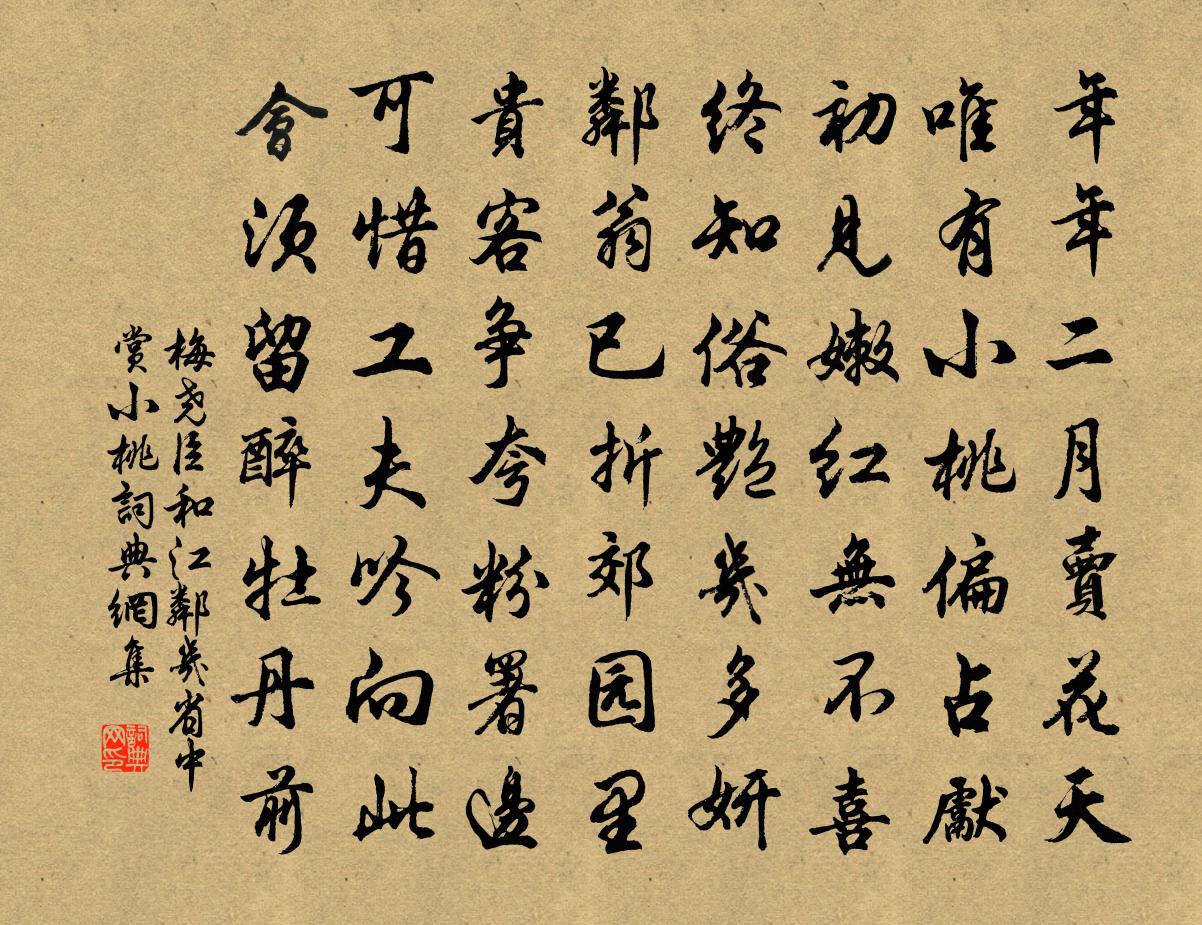 年年二月賣花天
唯有小桃偏占獻
初見嫩红無不喜
終知俗艷幾多妍
鄰翁已折郊园里
貴客爭夸粉署邊
可惜工夫吟向此
會須留醉牡丹前
梅堯臣和江鄰幾省中
賞小桃詞典網集
詞典
网印